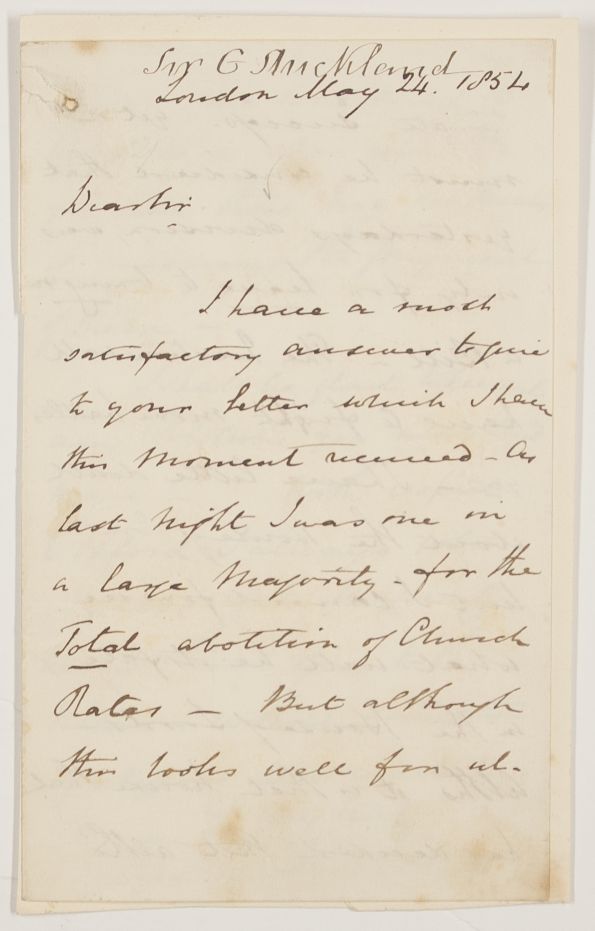 Sir G Strickland
London May 24. 1854
Dear Sir
I have a most
satisfactory answer to give
to your letter which I have
this moment received - As
last night I was one in
a large Majority - for the
Total abolition of Church
Rates — But although
this looks well for ul-